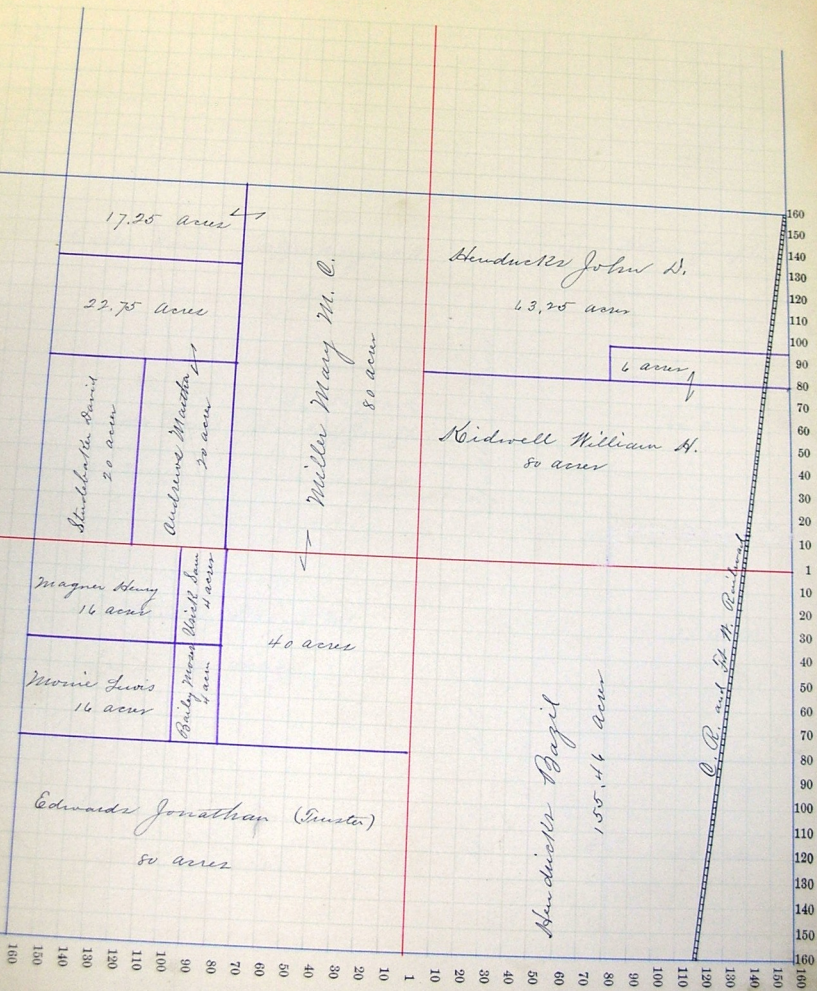 17.25 acres
22.75 acres
Studebaker David
20 acres
Andrews Martha
20 acres
Miller Mary M. C.
80 acres
Hendricks John D.
63.25 acres
6 acres
Kidwell William H.
80 acres
Magner Henry
16 acres
Usrick Sam
4 acres
Lewis
16 acres
Bailey Moses
4 acres
40 acres
Edwards Jonathan (Trustee)
80 acres
Hendricks Bazil
155.46 acres
C. R. and Ft. W. Railroad
160
150
140
130
120
110
100
90
80
70
60
50
40
30
20
10
1
10
20
30
40
50
60
70
80
90
100
110
120
130
140
150
160
160 150 140 130 120 110 100 90 80 70 60 50 40 30 20 10 1 10 20 30 40 50 60 70 80 90 100 110 120 130 140 150 160